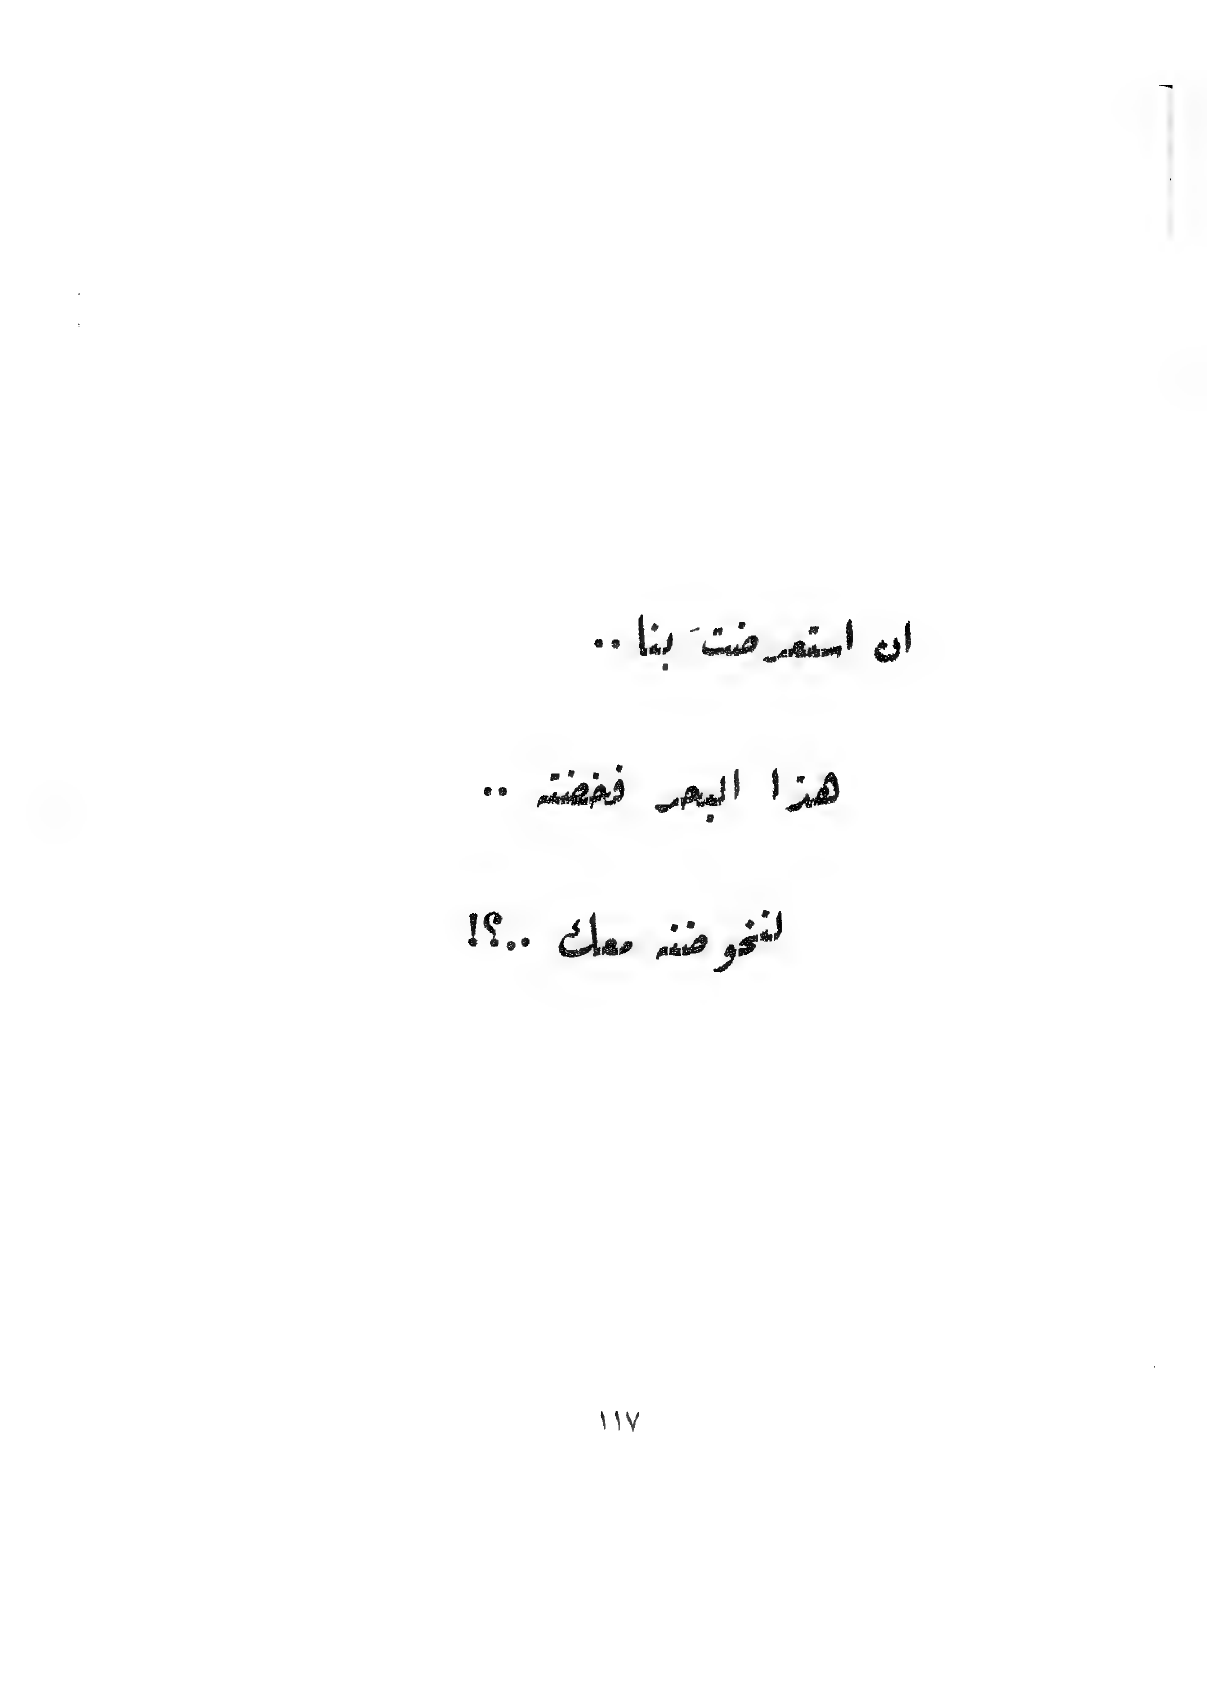 ان استعرضتَ بنا ..
هذا البحر فخضته ..
لنخوضنه معك ..؟!
١١٧